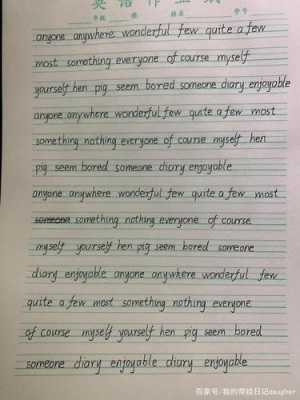 英语作业纸
anyone anywhere wonderful few quite a few
most something everyone of course myself
yourself hen pig seem bored someone diary enjoyable
anyone anywhere wonderful few quite a few most
something nothing everyone of course myself hen
pig seem bored someone diary enjoyable
anyone anywhere wonderful few quite a few most
someone something nothing everyone of course
myself yourself hen pig seem bored someone
diary enjoyable anyone anywhere wonderful few
quite a few most something nothing everyone
of course myself yourself hen pig seem bored
someone diary enjoyable diary enjoyable
百家号/我的带娃日记daugher